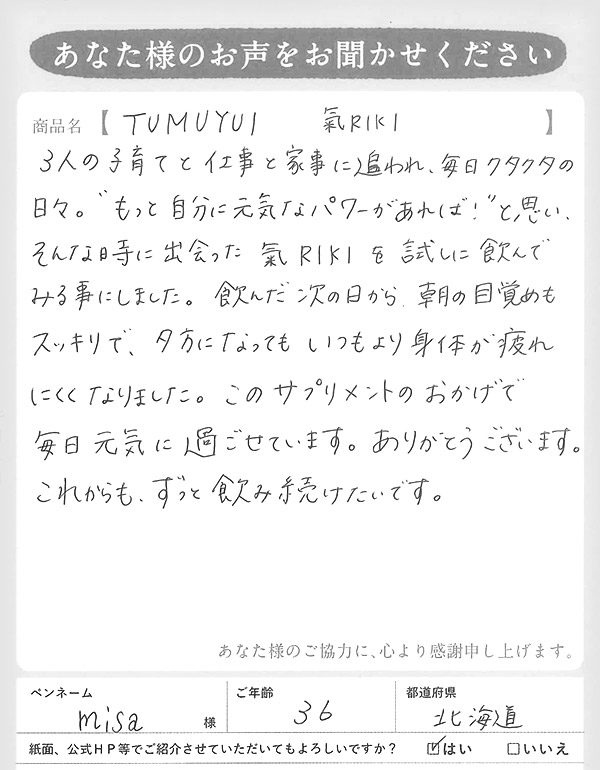 あなた様のお声をお聞かせください
商品名【 TUMUYUI 氣RIKI 】
3人の子育てと仕事と家事に追われ、毎日クタクタの
日々。"もっと自分に元気なパワーがあれば!"と思い、
そんな時に出会った 氣RIKIを試しに飲んで
みる事にしました。飲んだ次の日から、朝の目覚めも
スッキリで、夕方になっても いつもより身体が疲れ
にくくなりました。このサプリメントのおかげで
毎日元気に過ごせています。ありがとうございます。
これからも、ずっと飲み続けたいです。
あなた様のご協力に、心より感謝申し上げます。
ペンネーム misa 様 ご年齢 36 都道府県 北海道
紙面、公式HP等でご紹介させていただいてもよろしいですか? ☑はい □いいえ